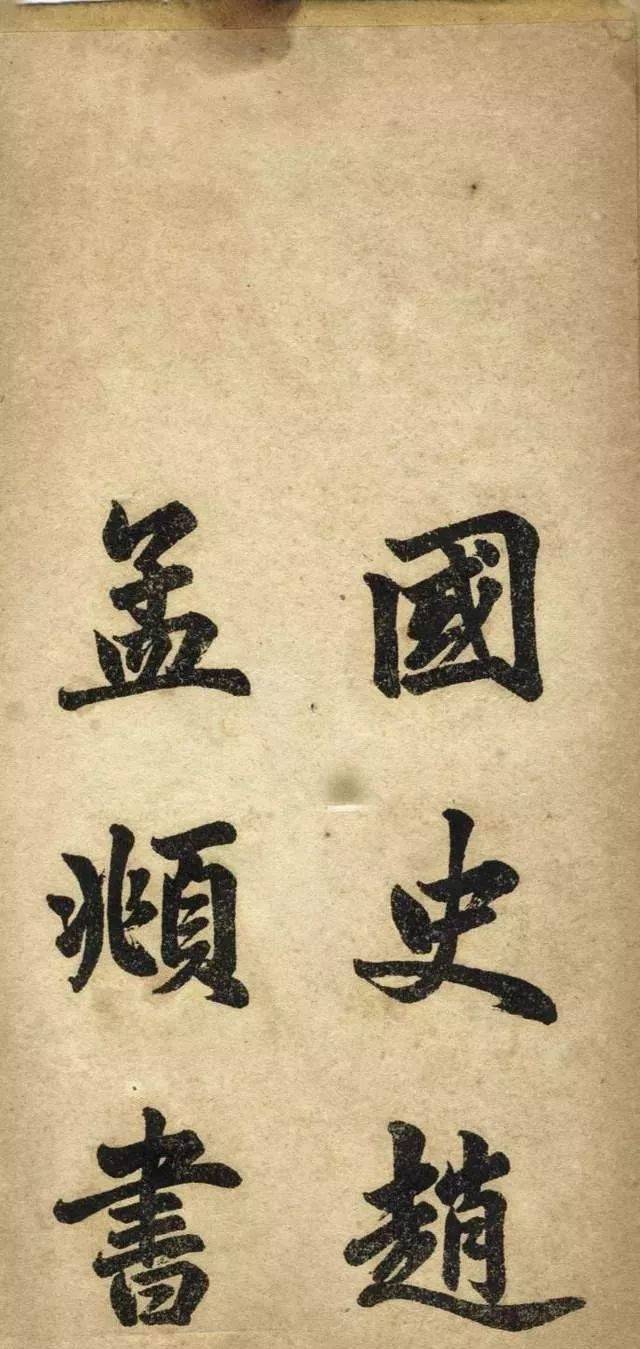 國史趙
孟頫書